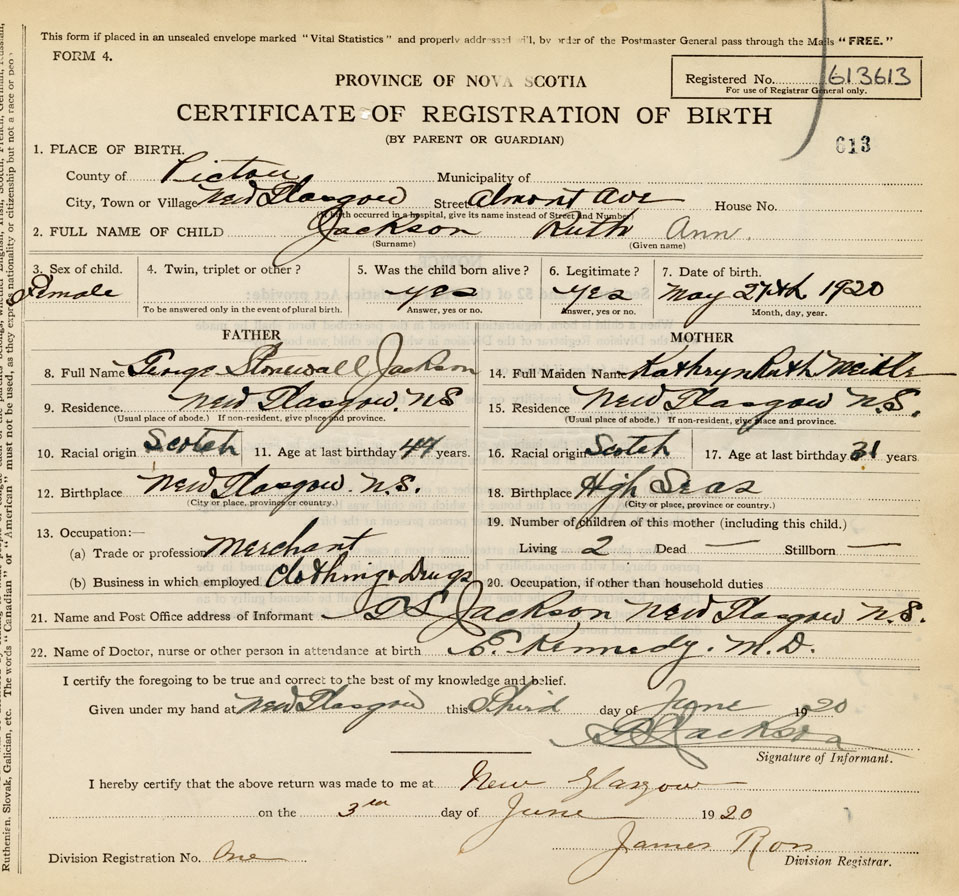 This form if placed in an unsealed envelope marked "Vital Statistics" and properly addressed will, by order of the Postmaster General pass through the Mails "FREE."
FORM 4.
PROVINCE OF NOVA SCOTIA
Registered No. 613613
For use of Registrar General only.
CERTIFICATE OF REGISTRATION OF BIRTH
(BY PARENT OR GUARDIAN)
613
1. PLACE OF BIRTH.
County of Pictou Municipality of
City, Town or Village New Glasgow Street Almont Ave House No.
(If birth occurred in a hospital, give its name instead of Street and Number)
2. FULL NAME OF CHILD Jackson Ruth Ann.
(Surname) (Given name)
3. Sex of child. 4. Twin, triplet or other? 5. Was the child born alive? 6. Legitimate? 7. Date of birth.
Female yes Yes May 27th 1920
To be answered only in the event of plural birth. Answer, yes or no. Answer, yes or no. Month, day, year.
FATHER MOTHER
8. Full Name George Stonewall Jackson 14. Full Maiden Name Kathryn Ruth Meikle
9. Residence. New Glasgow. N.S 15. Residence New Glasgow N.S.
(Usual place of abode.) If non-resident, give place and province. (Usual place of abode.) If non-resident, give place and province.
10. Racial origin Scotch 11. Age at last birthday 47 years. 16. Racial origin Scotch 17. Age at last birthday 31 years
12. Birthplace New Glasgow. N.S. 18. Birthplace High Seas
(City or place, province or country.) (City or place, province or country.)
13. Occupation:— 19. Number of children of this mother (including this child.)
(a) Trade or profession Merchant Living 2 Dead — Stillborn —
(b) Business in which employed Clothing & Drugs 20. Occupation, if other than household duties
21. Name and Post Office address of Informant G S Jackson New Glasgow N.S.
22. Name of Doctor, nurse or other person in attendance at birth E. Kennedy. M.D.
I certify the foregoing to be true and correct to the best of my knowledge and belief.
Given under my hand at New Glasgow this Third day of June 1920
G S Jackson
Signature of Informant.
I hereby certify that the above return was made to me at New Glasgow
on the 3rd day of June 1920
James Ross
Division Registration No. One Division Registrar.